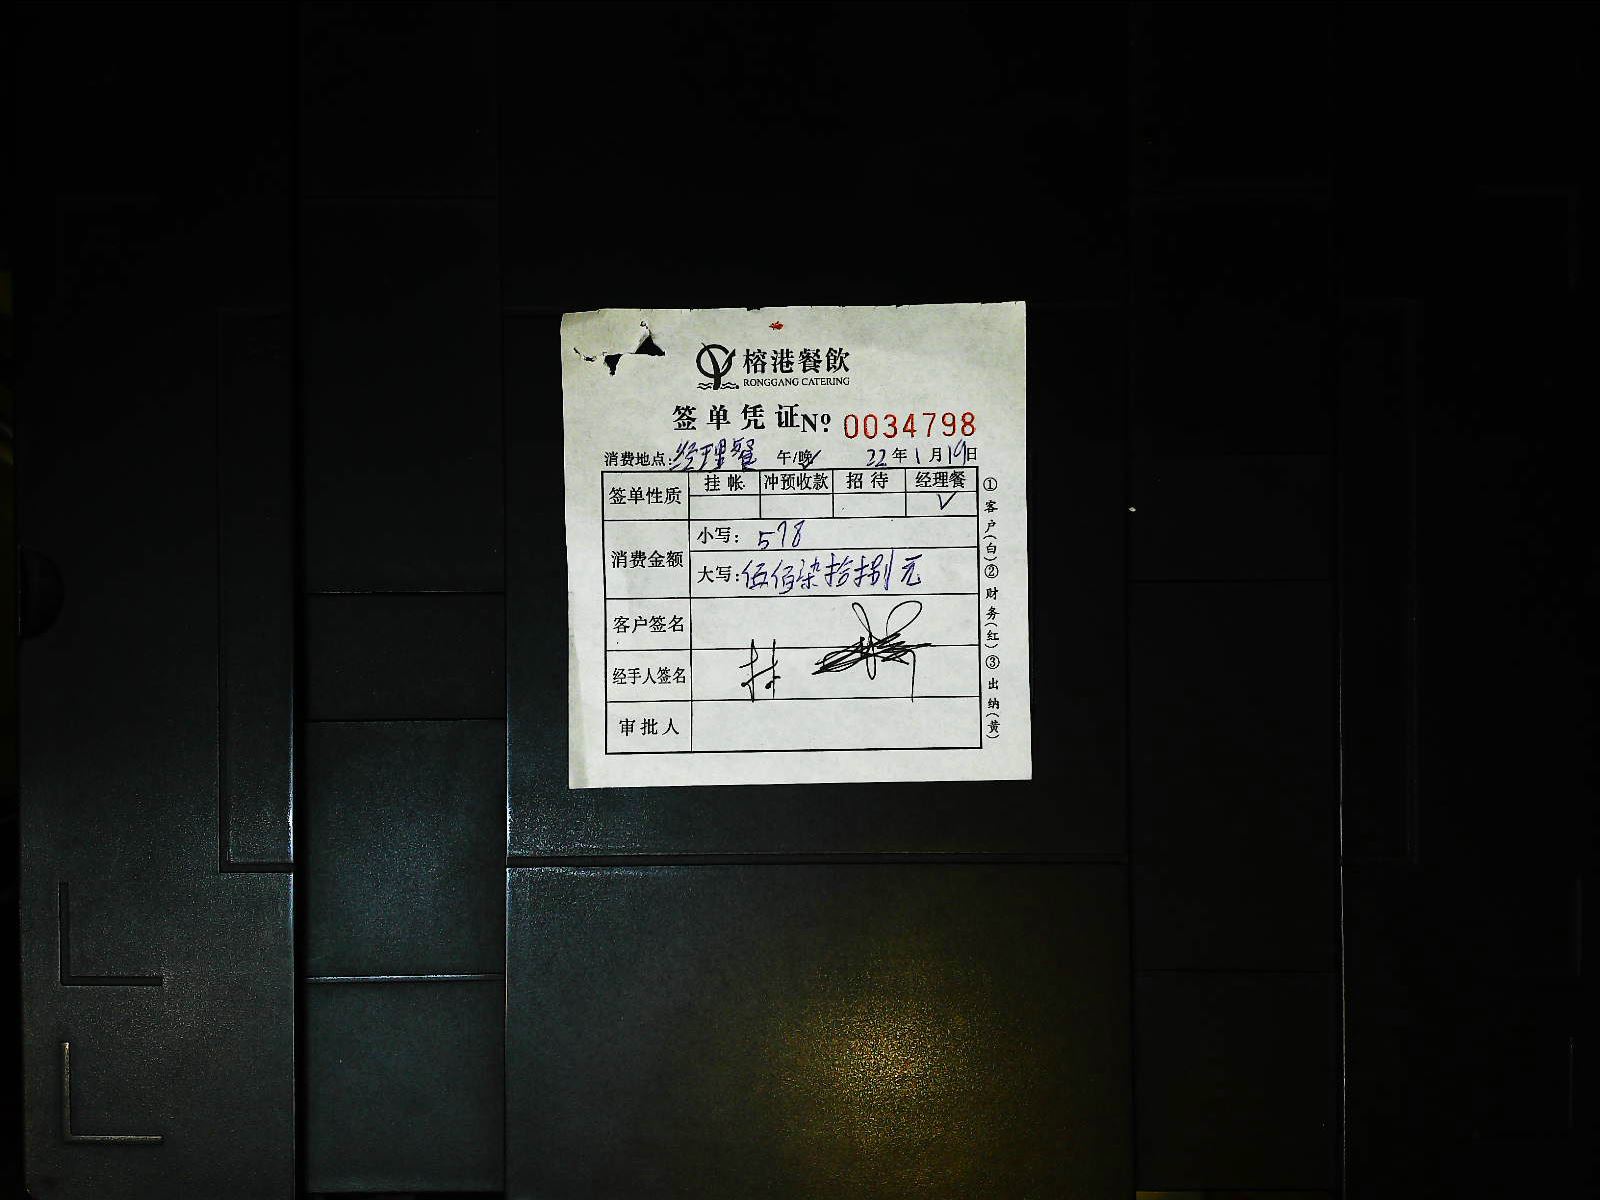 榕港餐飲
RONGGANG CATERING
签单凭证 Nº 0034798
消费地点:经理餐 午/晚 22年1月19日
签单性质 挂帐 冲预收款 招待 经理餐
√
消费金额 小写: 578
大写:伍佰柒拾捌元
客户签名
经手人签名
审批人
①客户(白)②财务(红)③出纳(黄)